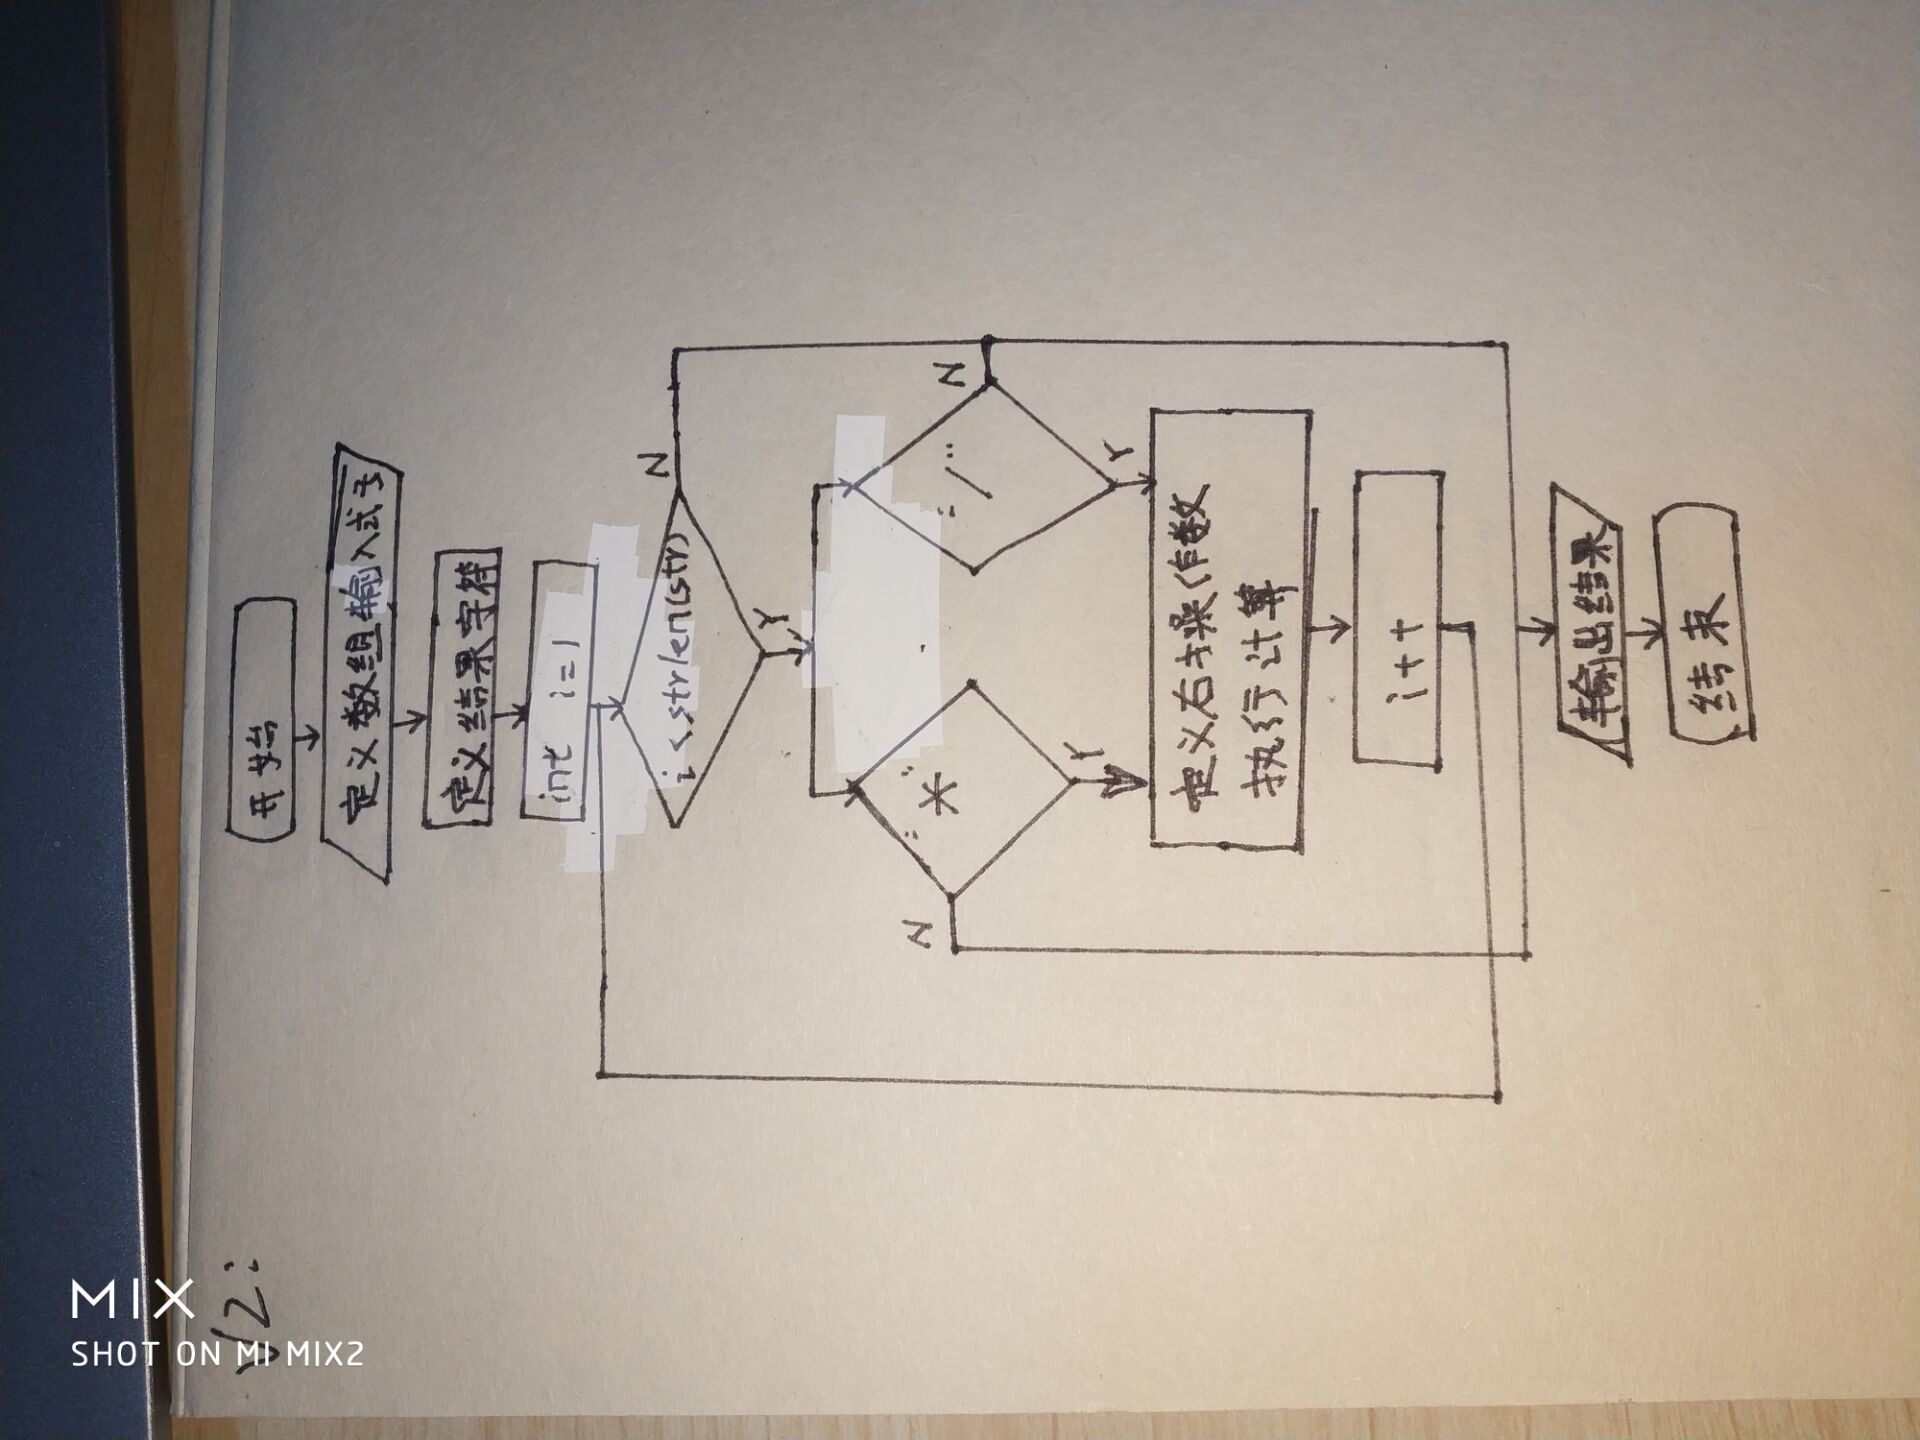 V2:
开始
定义数组输入式子
定义结果字符
int i=1
i<strlen(str)
N
Y
"*"
N
Y
"/"
N
Y
定义右操作数
执行计算
i++
输出结果
结束
MIX
SHOT ON MI MIX2